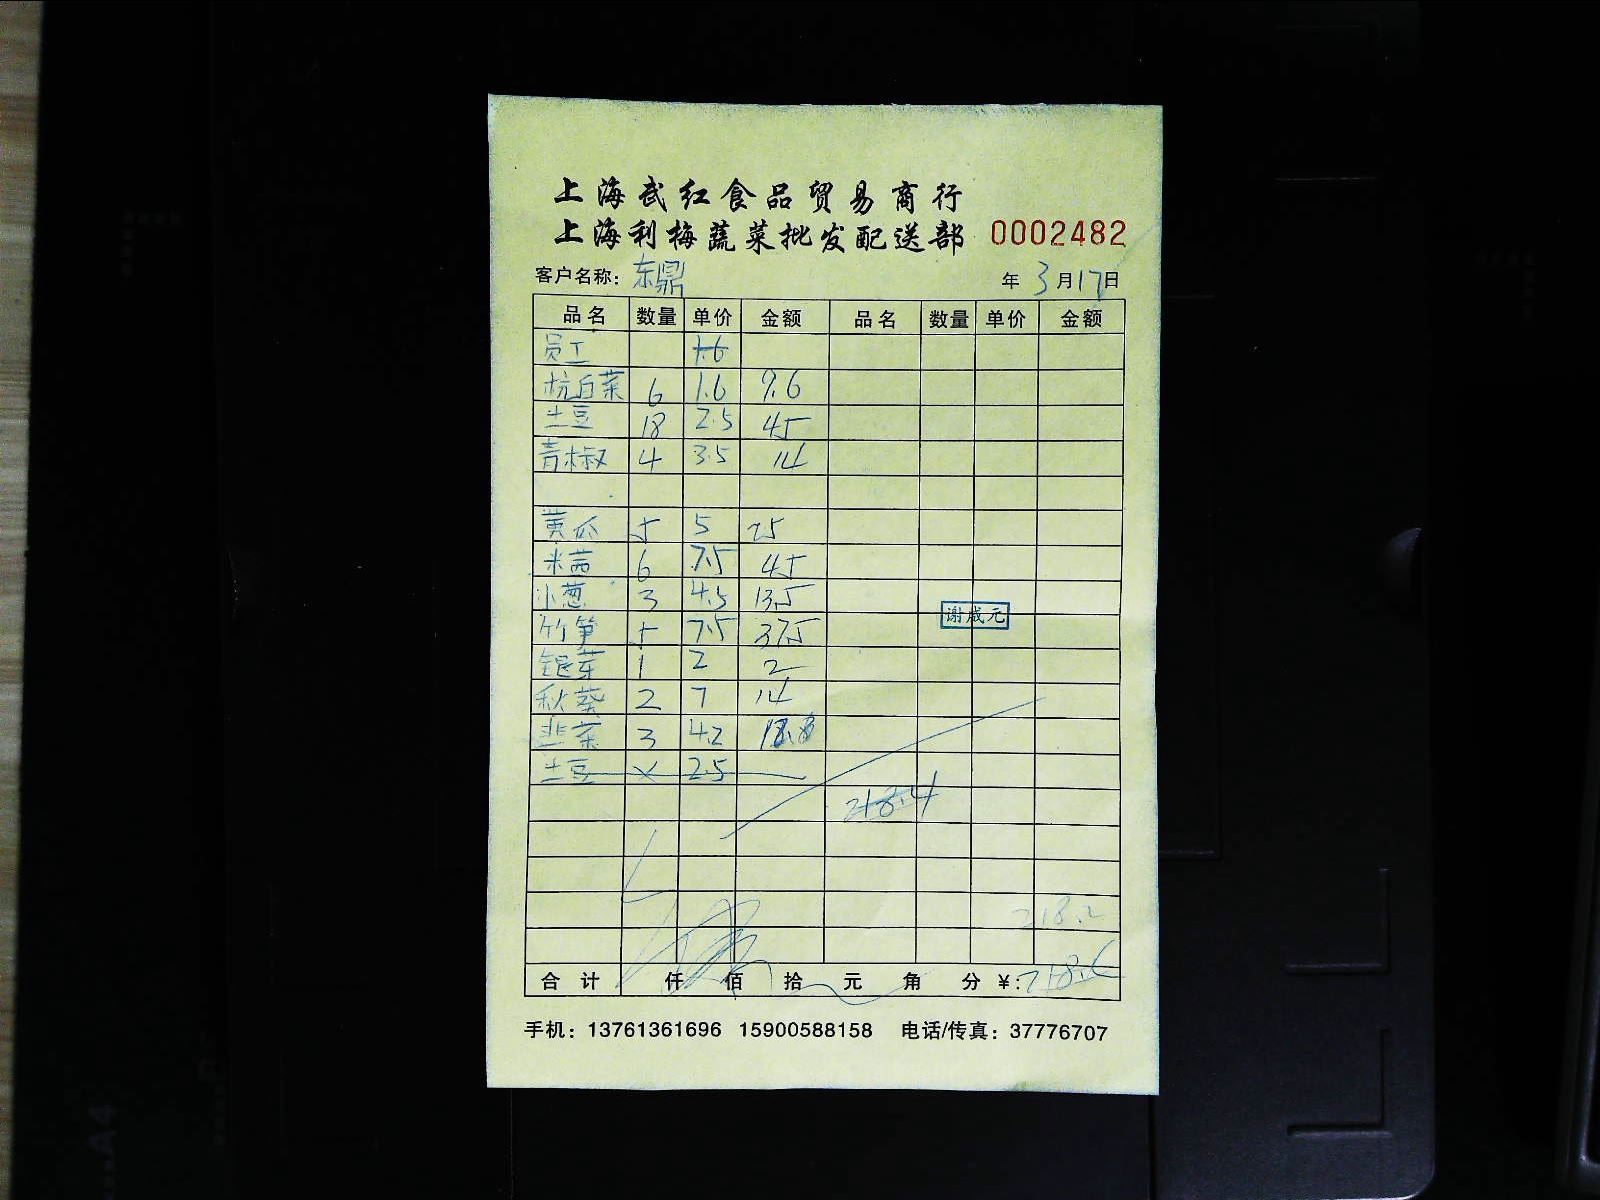 上海武红食品贸易商行
上海利梅蔬菜批发配送部 0002482
客户名称: 东鼎 年 3 月 17 日
品名 数量 单价 金额 品名 数量 单价 金额
员工 1.6
杭白菜 6 1.6 9.6
土豆 18 2.5 45
青椒 4 3.5 14
黄瓜 5 5 25
米茜 6 7.5 45
小葱 3 4.5 13.5
谢咸元
竹笋 5 7.5 37.5
银芽 1 2 2
秋葵 2 7 14
韭菜 3 4.2
土豆 2.5
218.4
218.2
合计 仟 佰 拾 元 角 分 ¥: 218.6
手机: 13761361696 15900588158 电话/传真: 37776707